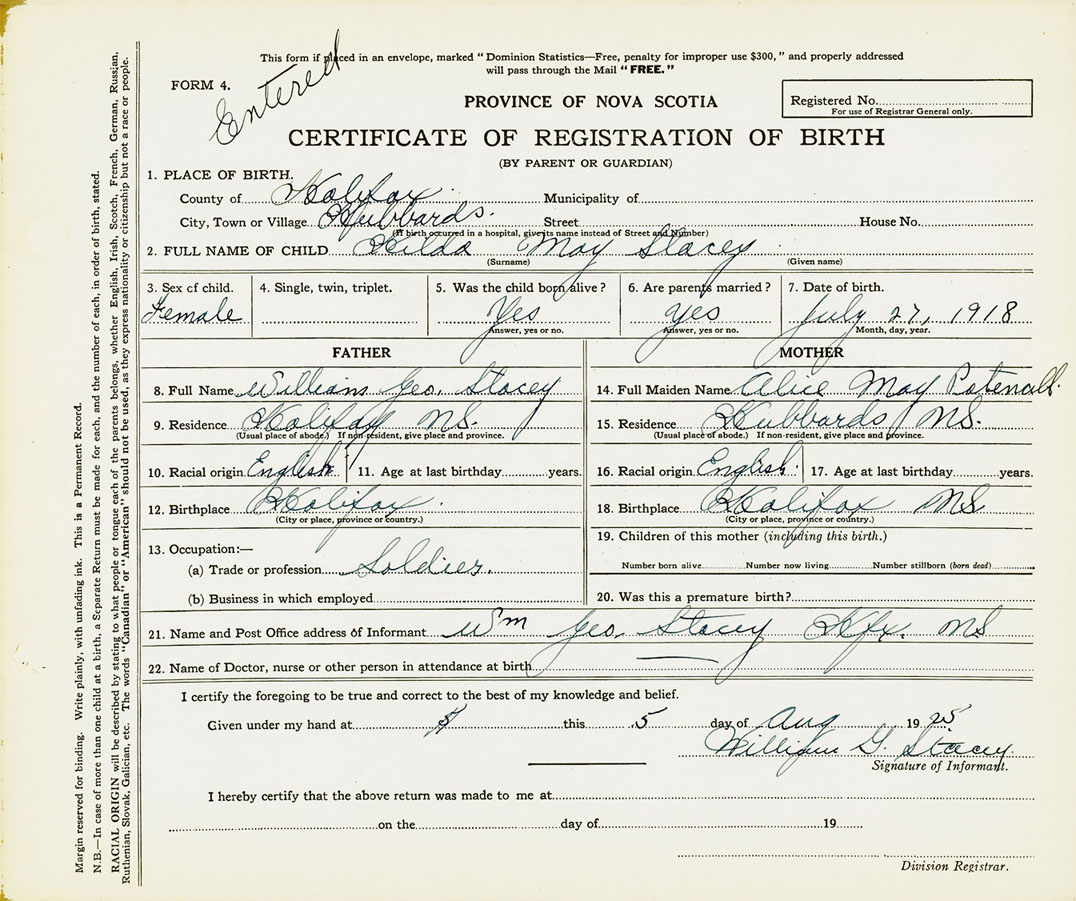 This form if placed in an envelope, marked "Dominion Statistics—Free, penalty for improper use $300," and properly addressed
will pass through the Mail "FREE."
FORM 4.
Entered
PROVINCE OF NOVA SCOTIA
Registered No.
For use of Registrar General only.
CERTIFICATE OF REGISTRATION OF BIRTH
(BY PARENT OR GUARDIAN)
1. PLACE OF BIRTH.
County of Halifax Municipality of
City, Town or Village Hubbards. Street House No.
(If birth occurred in a hospital, give its name instead of Street and Number)
2. FULL NAME OF CHILD Hilda May Stacey
(Surname) (Given name)
3. Sex of child. 4. Single, twin, triplet. 5. Was the child born alive? 6. Are parents married? 7. Date of birth.
Female Yes Yes July 27, 1918
Answer, yes or no. Answer, yes or no. Month, day, year.
FATHER MOTHER
8. Full Name William Geo. Stacey 14. Full Maiden Name Alice May
9. Residence Halifax NS. 15. Residence Hubbards NS.
(Usual place of abode.) If non-resident, give place and province. (Usual place of abode.) If non-resident, give place and province.
10. Racial origin English 11. Age at last birthday years. 16. Racial origin English 17. Age at last birthday years.
12. Birthplace Halifax 18. Birthplace Halifax NS
(City or place, province or country.) (City or place, province or country.)
13. Occupation:— 19. Children of this mother (including this birth.)
(a) Trade or profession Soldier. Number born alive Number now living Number stillborn (born dead)
(b) Business in which employed 20. Was this a premature birth?
21. Name and Post Office address of Informant Wm Geo. Stacey Hfx. NS
22. Name of Doctor, nurse or other person in attendance at birth
I certify the foregoing to be true and correct to the best of my knowledge and belief.
Given under my hand at this 5 day of Aug 19 25
William G. Stacey
Signature of Informant.
I hereby certify that the above return was made to me at
on the day of 19
Division Registrar.
Margin reserved for binding. Write plainly, with unfading ink. This is a Permanent Record.
N.B.—In case of more than one child at a birth, a Separate Return must be made for each, and the number of each, in order of birth, stated.
RACIAL ORIGIN will be described by stating to what people or tongue each of the parents belongs, whether English, Irish, Scotch, French, German, Russian,
Ruthenian, Slovak, Galician, etc. The words "Canadian" or "American" should not be used, as they express nationality or citizenship but not a race or people.